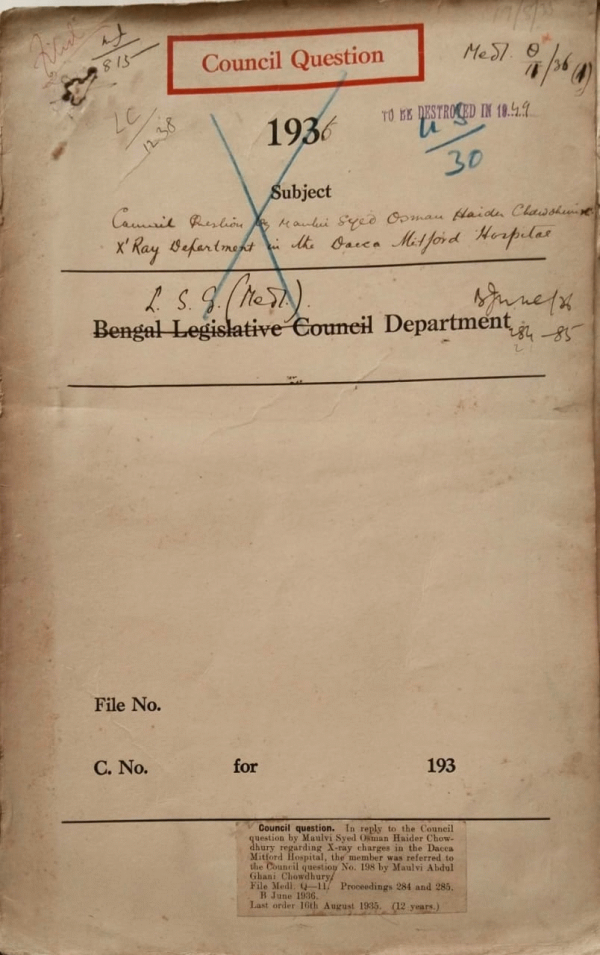 Council Question
Medl. Q/11/36 (1)
815
LC/1238
1936
TO BE DESTROYED IN 1949
30
Subject
Council Question by Maulvi Syed Osman Haider Chowdhury
X'Ray Department in the Dacca Mitford Hospital
L. S. G. (Medl.).
B June/36
Bengal Legislative Council Department
284-85
File No.
C. No. for 193
Council question. In reply to the Council
question by Maulvi Syed Osman Haider Chow-
dhury regarding X-ray charges in the Dacca
Mitford Hospital, the member was referred to
the Council question No. 198 by Maulvi Abdul
Ghani Chowdhury/
File Medl. Q—11/ Proceedings 284 and 285,
B June 1936.
Last order 16th August 1935. (12 years.)